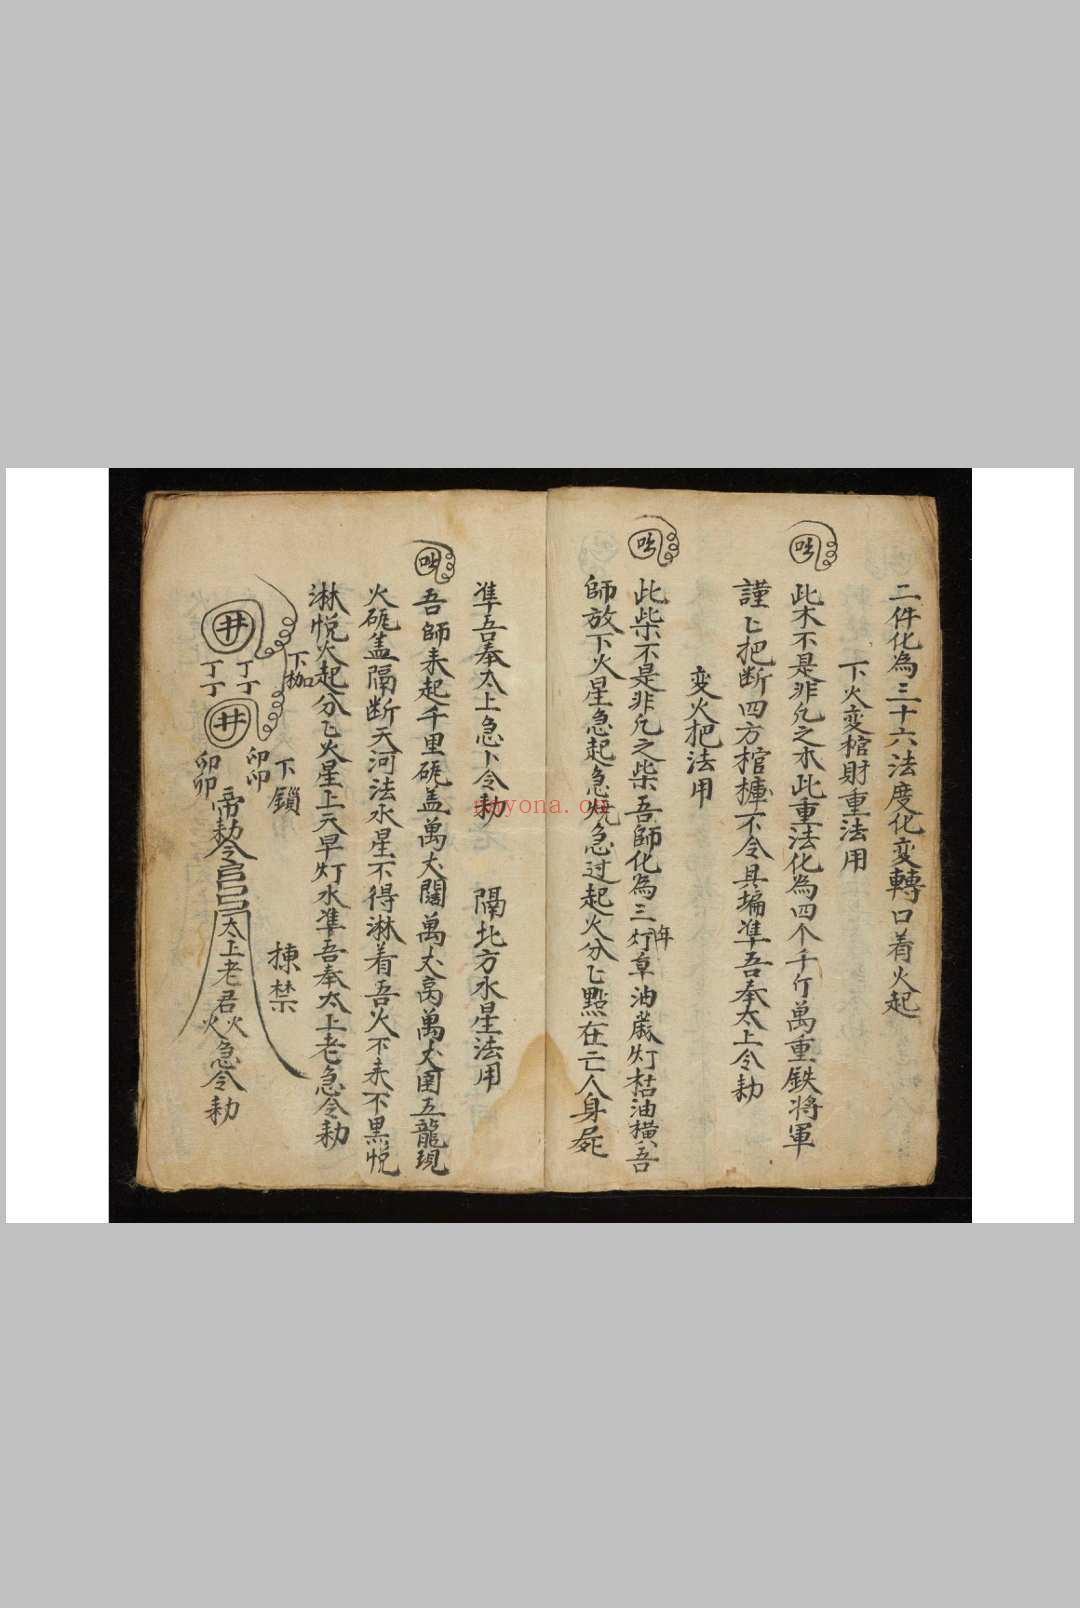 二件化為三十六法度化变轉口着火起
下火变棺財重法用
此木不是非凢之木此重法化為四个千斤萬重鉄将軍
謹〻把断四方棺槤不令具塲凖吾奉太上令勅
变火把法用
此柴不是非凢之柴吾師化為三年灯草油歳灯枯油横吾
師放下火星急起急急过起火分〻點在亡人身屍
凖吾奉太上急〻令勅
隔北方水星法用
吾師来起千里硴盖萬丈闊萬丈高萬丈囯五龍現
火硴盖隔断天河法水星不得淋着吾火不来不黒悦
淋悦火起分〻火星上天旱灯水凖吾奉太上老急令勅
下枷
下鎖
揀禁
井
井
丁丁
丁丁
卯卯
卯卯
帝勅令
太上老君
火火
急令勅
nayona.cn